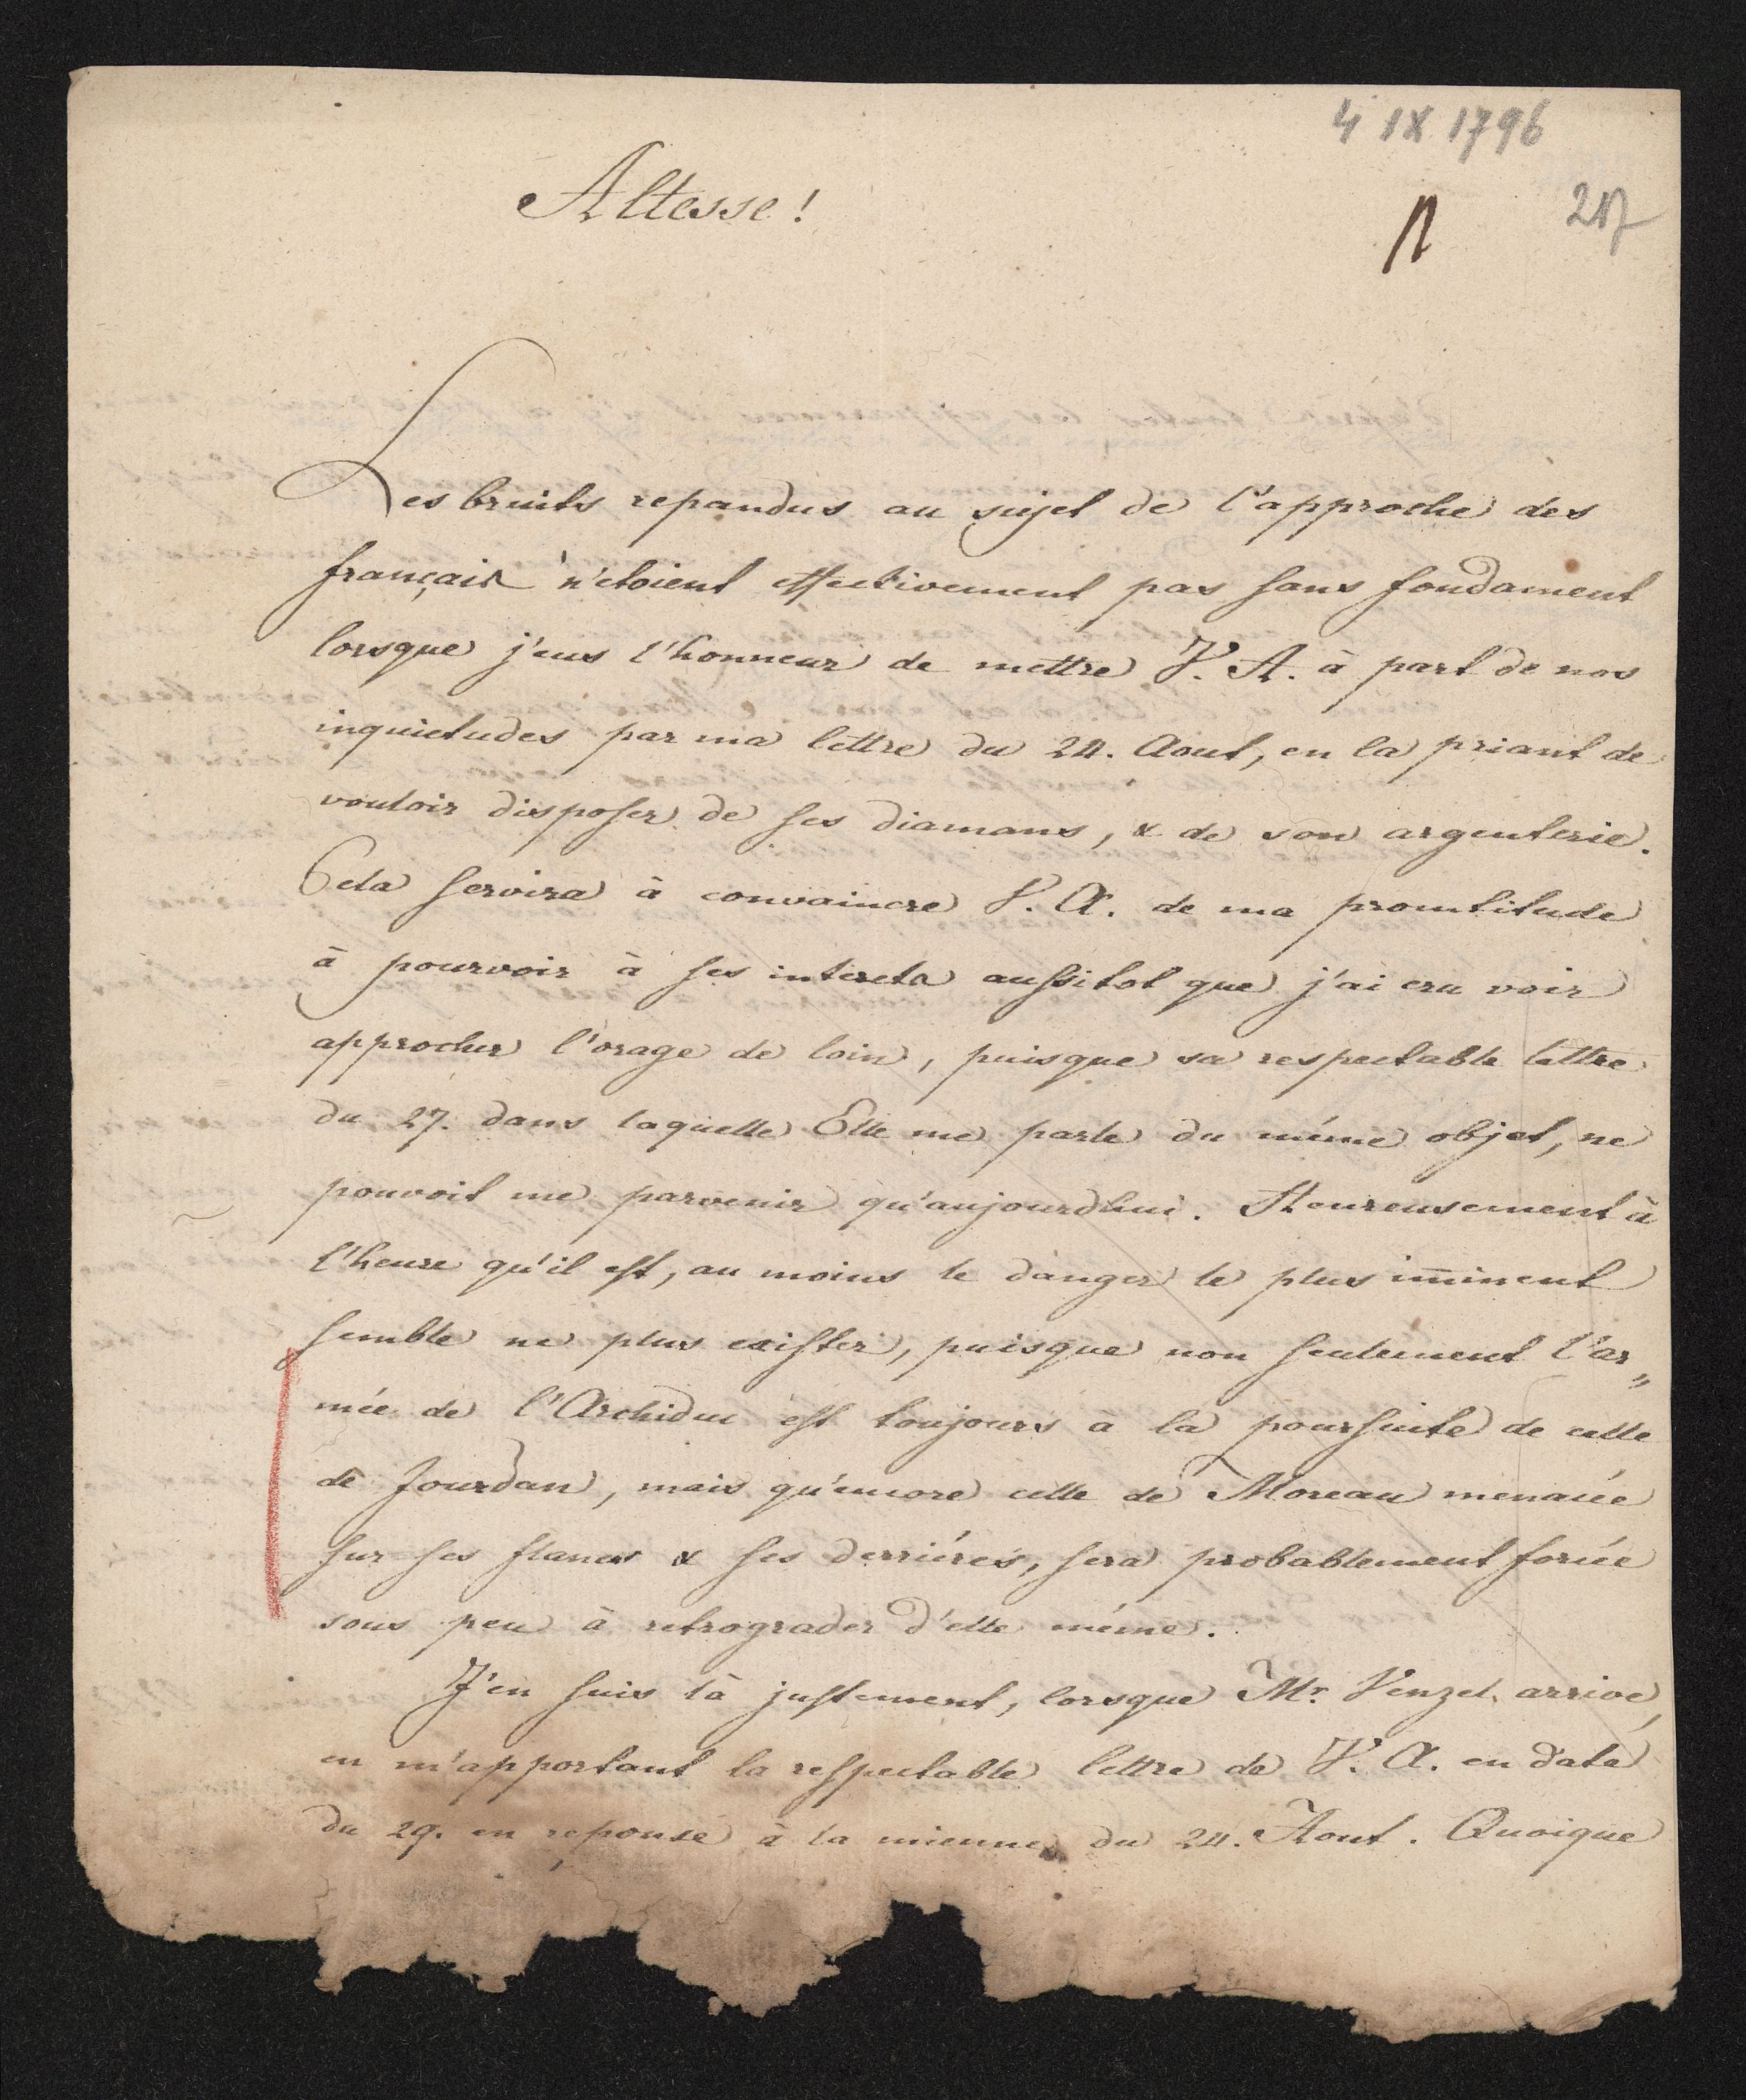 4 IX 1796
Altesse!
217
Les bruits repandus au sujet de l'approche des
français n'etoient effectivement pas sans fondament
lorsque j'eus l'honneur de mettre V. A. à part de nos
inquietudes par ma lettre du 24. Aout, en la priant de
vouloir disposer de ses diamans, & de son argenterie.
Cela servira à convaincre V. A. de ma promtitude
à pourvoir à ses interets aussitot que j'ai cru voir
approcher l'orage de loin, puisque sa respectable lettre
du 27. dans laquelle Elle me parle du même objet, ne
pouvoit me parvenir qu'aujourdhui. Heureusement à
l'heure qu'il est, au moins le danger le plus im̅inent
semble ne plus exister, puisque non seulement l'ar„
mée de l'Archiduc est toujours à la poursuite de celle
de Jourdan, mais qu'encore celle de Moreau menacée
sur ses flancs & ses derriéres, sera probablement forcée
sous peu à retrograder d'elle même.
J'en suis là justement, lorsque Mr. Venzel arrive,
en m'apportant la respectable lettre de V. A. en date
du 29. en reponse à la mienne du 24. Aout. Quoique